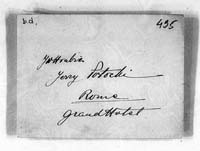 b.d.
495
Hrabia
Jerzy Potocki
Rome
Grand Hotel